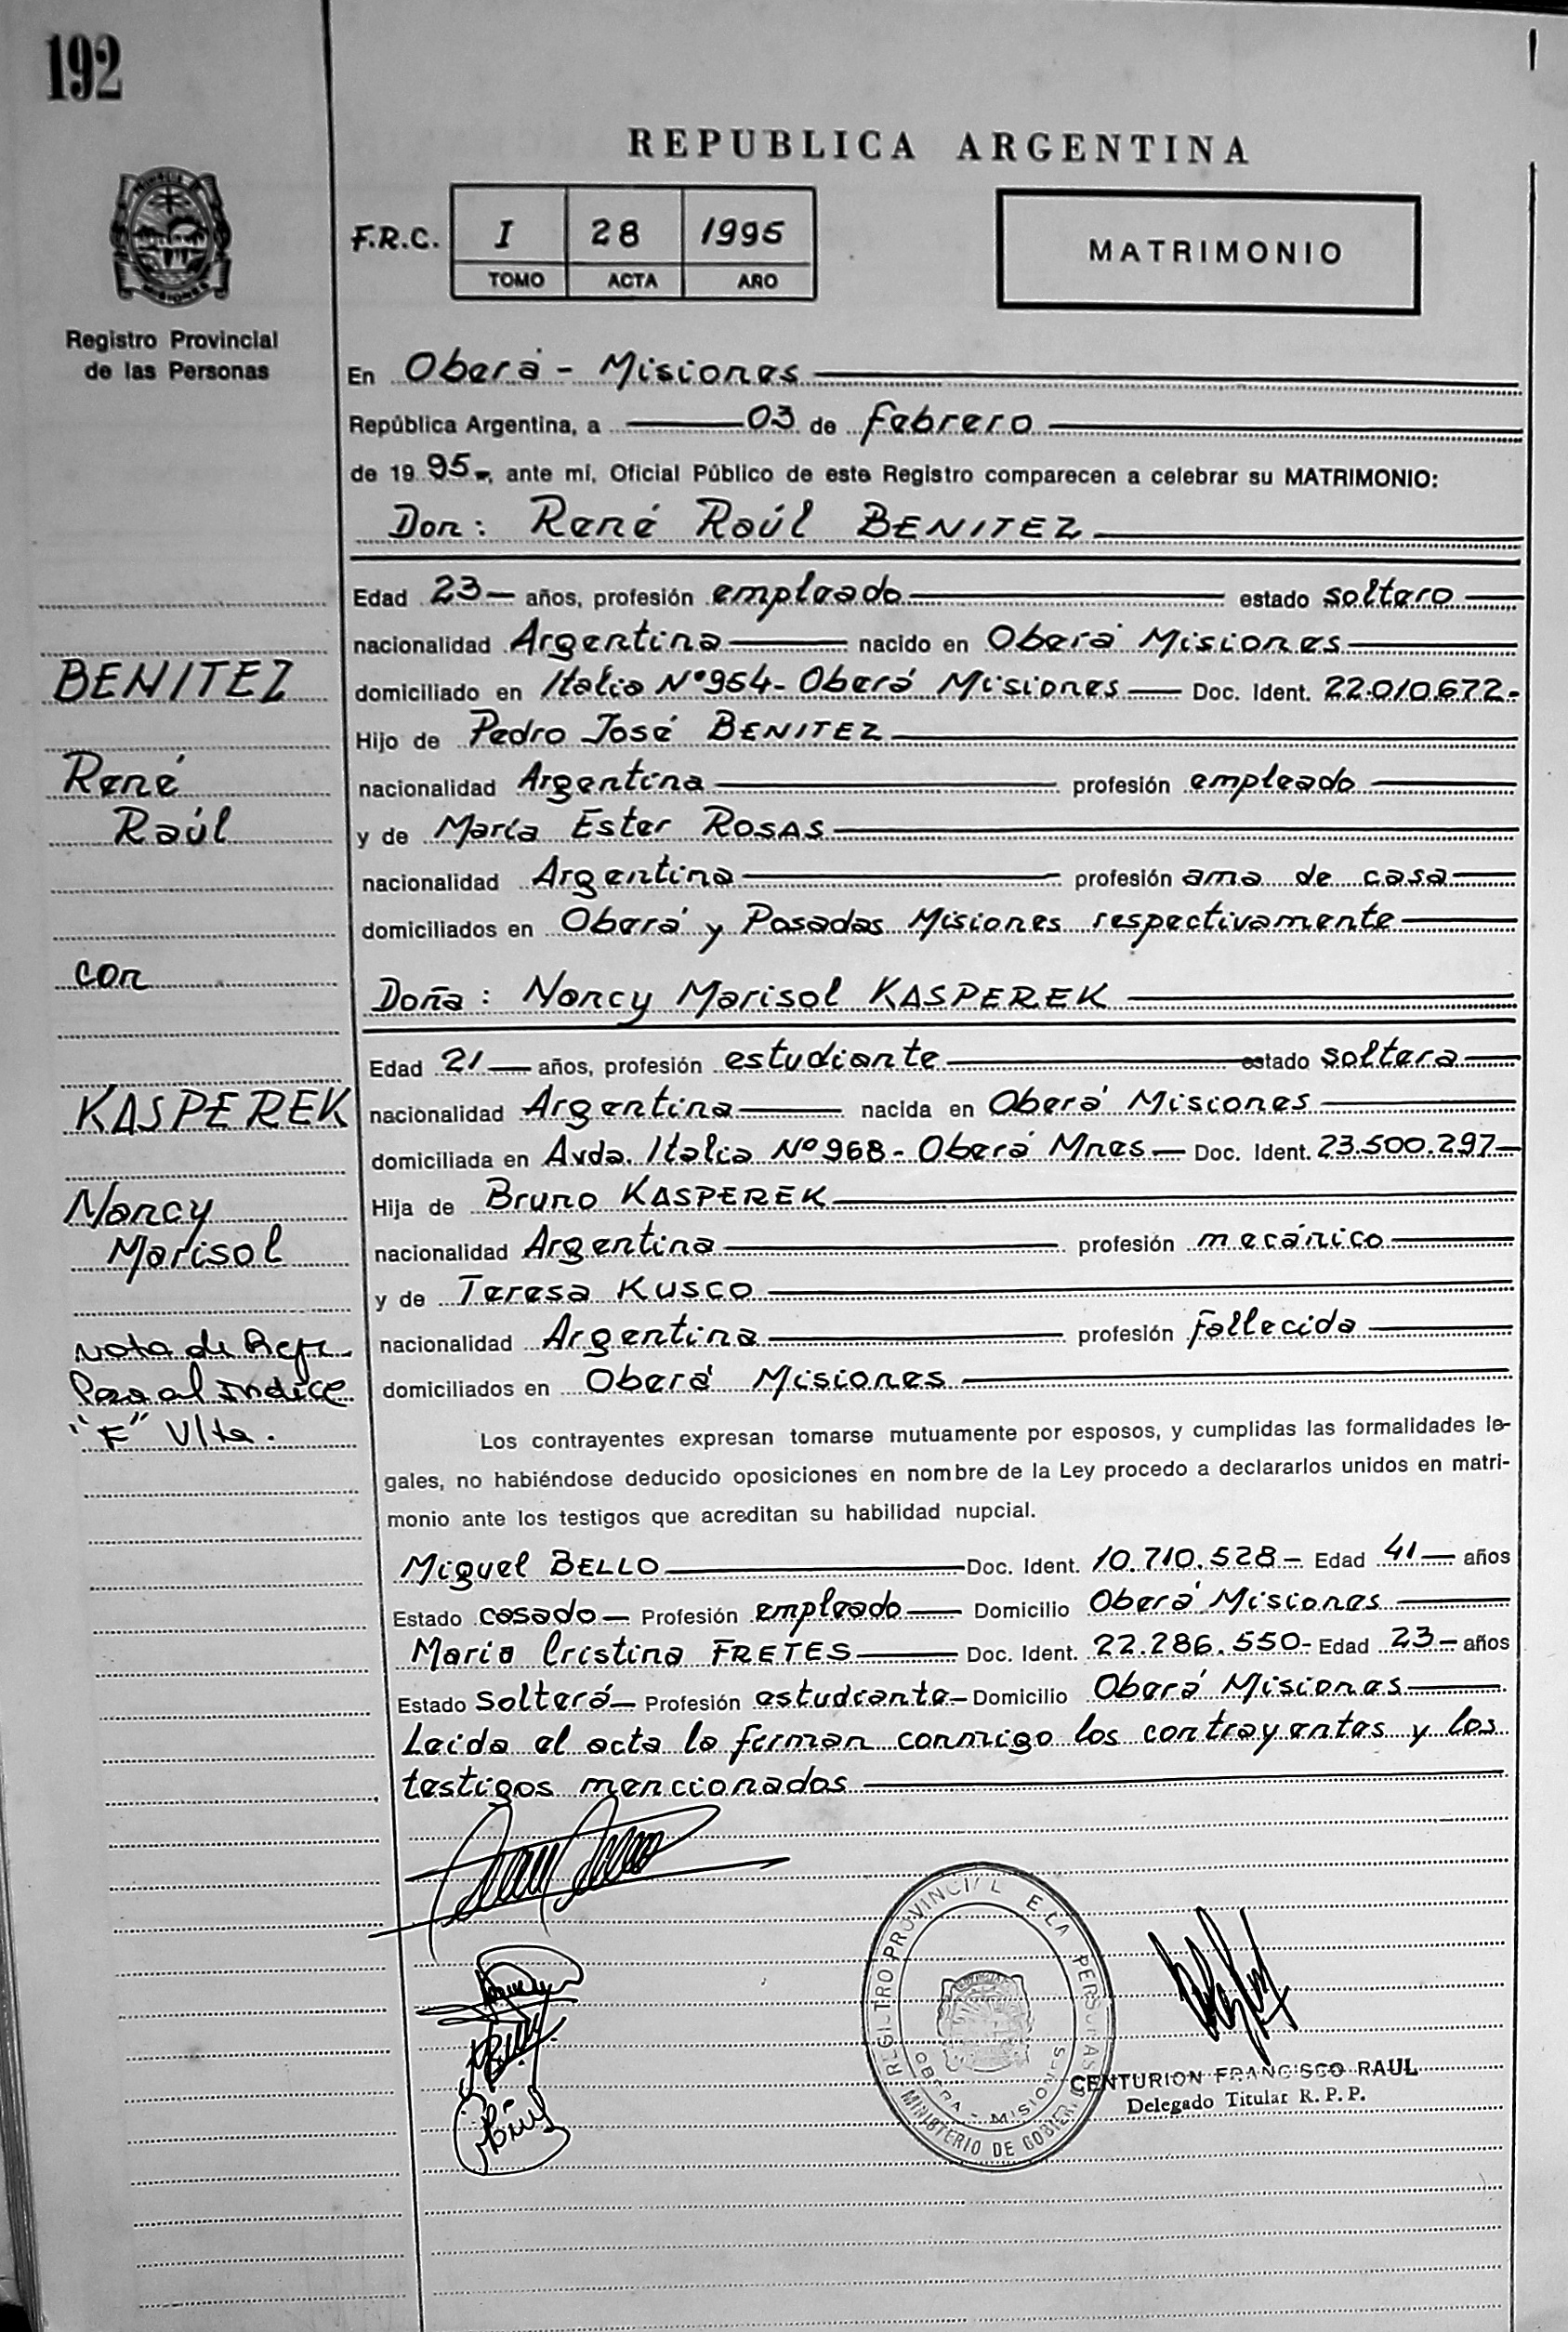 192
REPUBLICA ARGENTINA
F.R.C. I 28 1995
TOMO ACTA AÑO
MATRIMONIO
Registro Provincial
de las Personas
En Oberá - Misiones
República Argentina, a 03 de febrero
de 1995-, ante mí, Oficial Público de este Registro comparecen a celebrar su MATRIMONIO:
Don: René Raúl BENITEZ
Edad 23 años, profesión empleado estado soltero
nacionalidad Argentina nacido en Oberá Misiones
domiciliado en Italia Nº 954- Oberá Misiones Doc. Ident. 22.010.672-
Hijo de Pedro José BENITEZ
nacionalidad Argentina profesión empleado
y de María Ester ROSAS
nacionalidad Argentina profesión ama de casa
domiciliados en Oberá y Posadas Misiones respectivamente
Doña: Nancy Marisol KASPEREK
Edad 21 años, profesión estudiante estado soltera
nacionalidad Argentina nacida en Oberá Misiones
domiciliada en Avda. Italia Nº 968- Oberá Mnes Doc. Ident. 23.500.297
Hija de Bruno KASPEREK
nacionalidad Argentina profesión mecánico
y de Teresa KUSCO
nacionalidad Argentina profesión fallecida
domiciliados en Oberá Misiones
Los contrayentes expresan tomarse mutuamente por esposos, y cumplidas las formalidades le-
gales, no habiéndose deducido oposiciones en nombre de la Ley procedo a declararlos unidos en matri-
monio ante los testigos que acreditan su habilidad nupcial.
Miguel BELLO Doc. Ident. 10.710.528- Edad 41 años
Estado casado Profesión empleado Domicilio Oberá Misiones
Maria Cristina FRETES Doc. Ident. 22.286.550- Edad 23 años
Estado Solterá Profesión estudiante Domicilio Oberá Misiones
Leida el acta la firman conmigo los contrayentes y los
testigos mencionados
BENITEZ
René
Raúl
con
KASPEREK
Nancy
Marisol
Nota de Refr.
Pasa al Indice
"F" Vlta.
REGISTRO PROVINCIAL E LA PERSONAS
OBERA - MISIONES
MINISTERIO DE GOBIER
CENTURION FRANCISCO RAUL
Delegado Titular R. P. P.